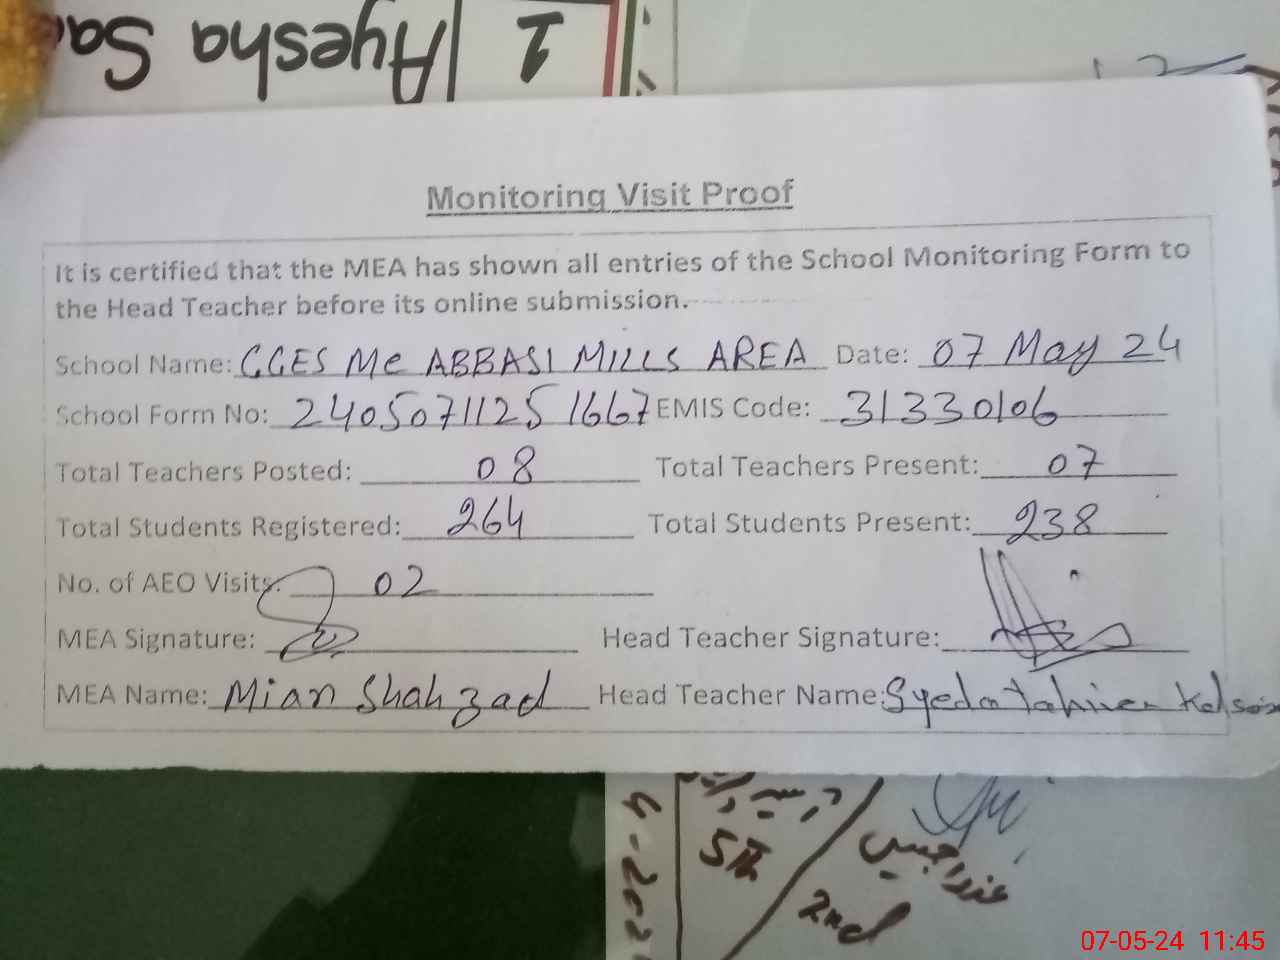 1 Ayesha Sa
Monitoring Visit Proof
It is certified that the MEA has shown all entries of the School Monitoring Form to
the Head Teacher before its online submission.
School Name: GGES MC ABBASI MILLS AREA Date: 07 May 24
School Form No: 24050711251667 EMIS Code: 31330106
Total Teachers Posted: 08 Total Teachers Present: 07
Total Students Registered: 264 Total Students Present: 238
No. of AEO Visits: 02
MEA Signature: Head Teacher Signature:
MEA Name: Mian Shahzad Head Teacher Name: Syeda Tahira
5th
2nd
07-05-24 11:45